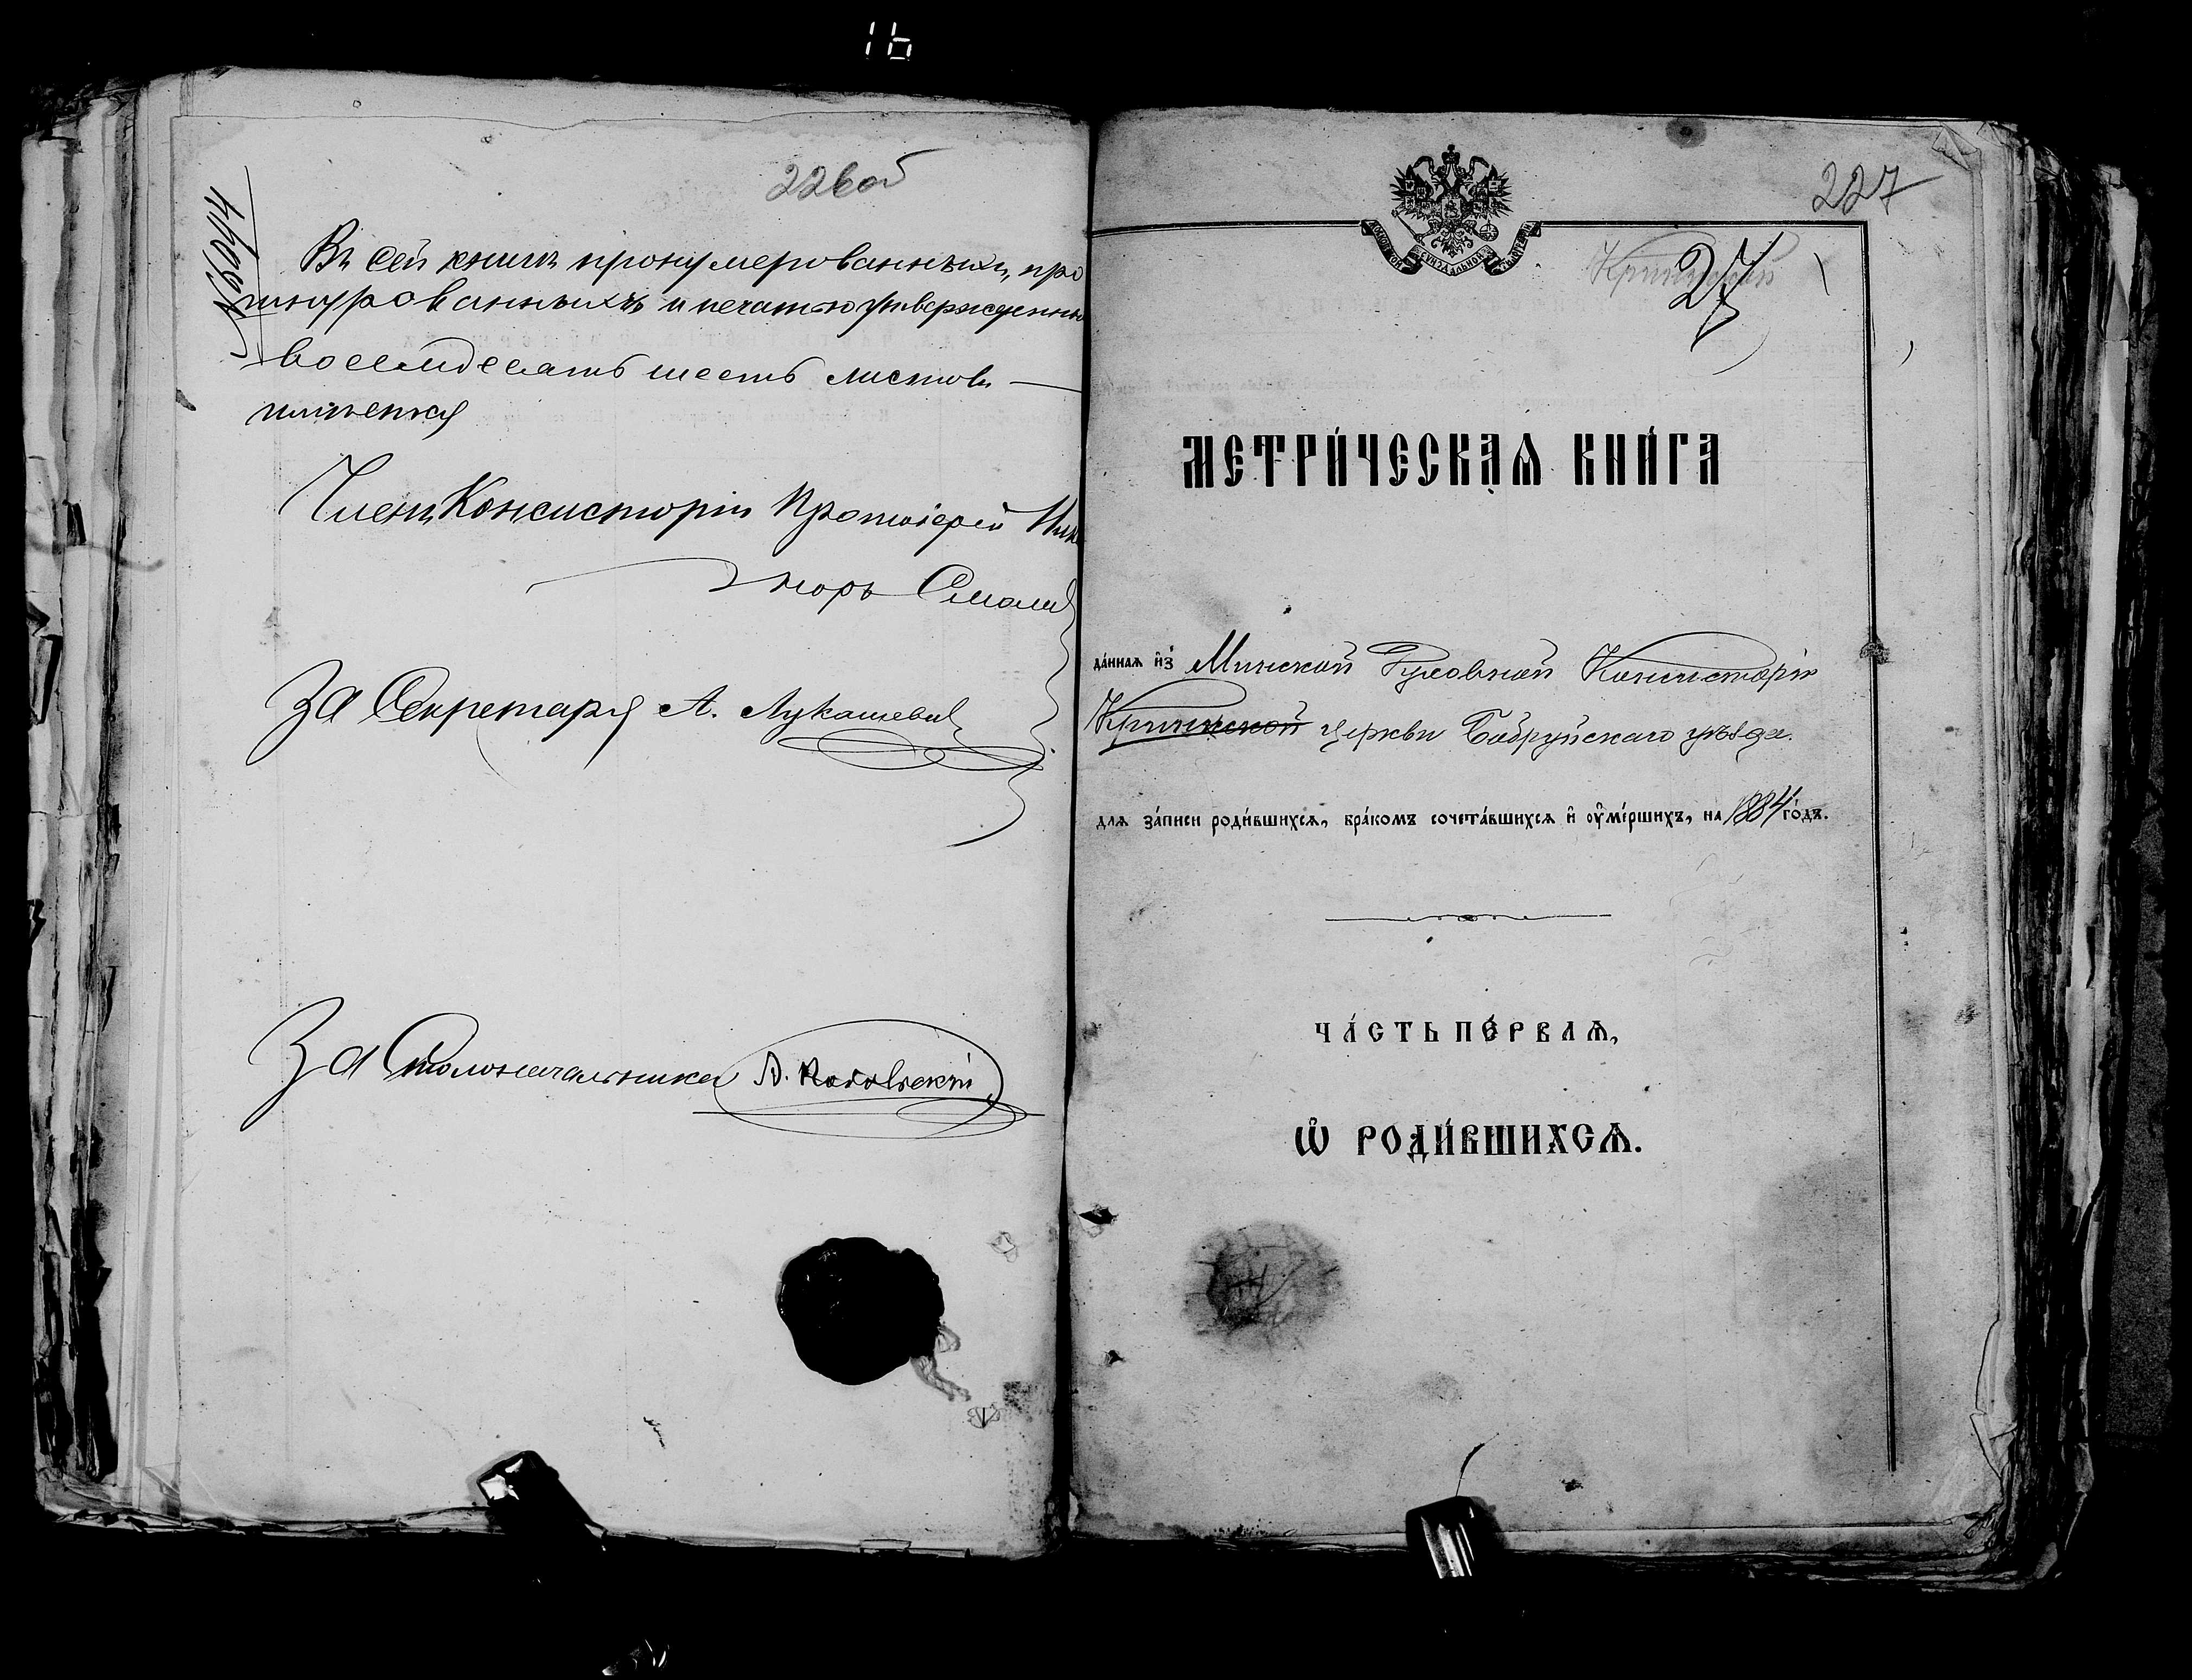 16
226об
№6044
Въ сей книгѣ пронумерованныхъ, про
шнурованныхъ и печатью утвержденны
восемьдесятъ шесть листовъ —
имѣется
Членъ Консисторіи Протоіерей
За Секретаря А. Лукашевич
За Столоначальника
227
27
МЕТРИ́ЧЕСКАѦ КНИ́ГА
да́ннаѧ и҆з̾ Минской Духовной Консисторіи
церкви Бобруйскаго уѣзда.
длѧ за́писи роди́вшихсѧ, бра́комъ сочета́вшихсѧ и҆ ᲂу҆ме́ршихъ, на 1884 го́дъ.
ЧА́СТЬ ПЕ́РВАѦ,
Ѡ҆ РОДИ́ВШИХСѦ.